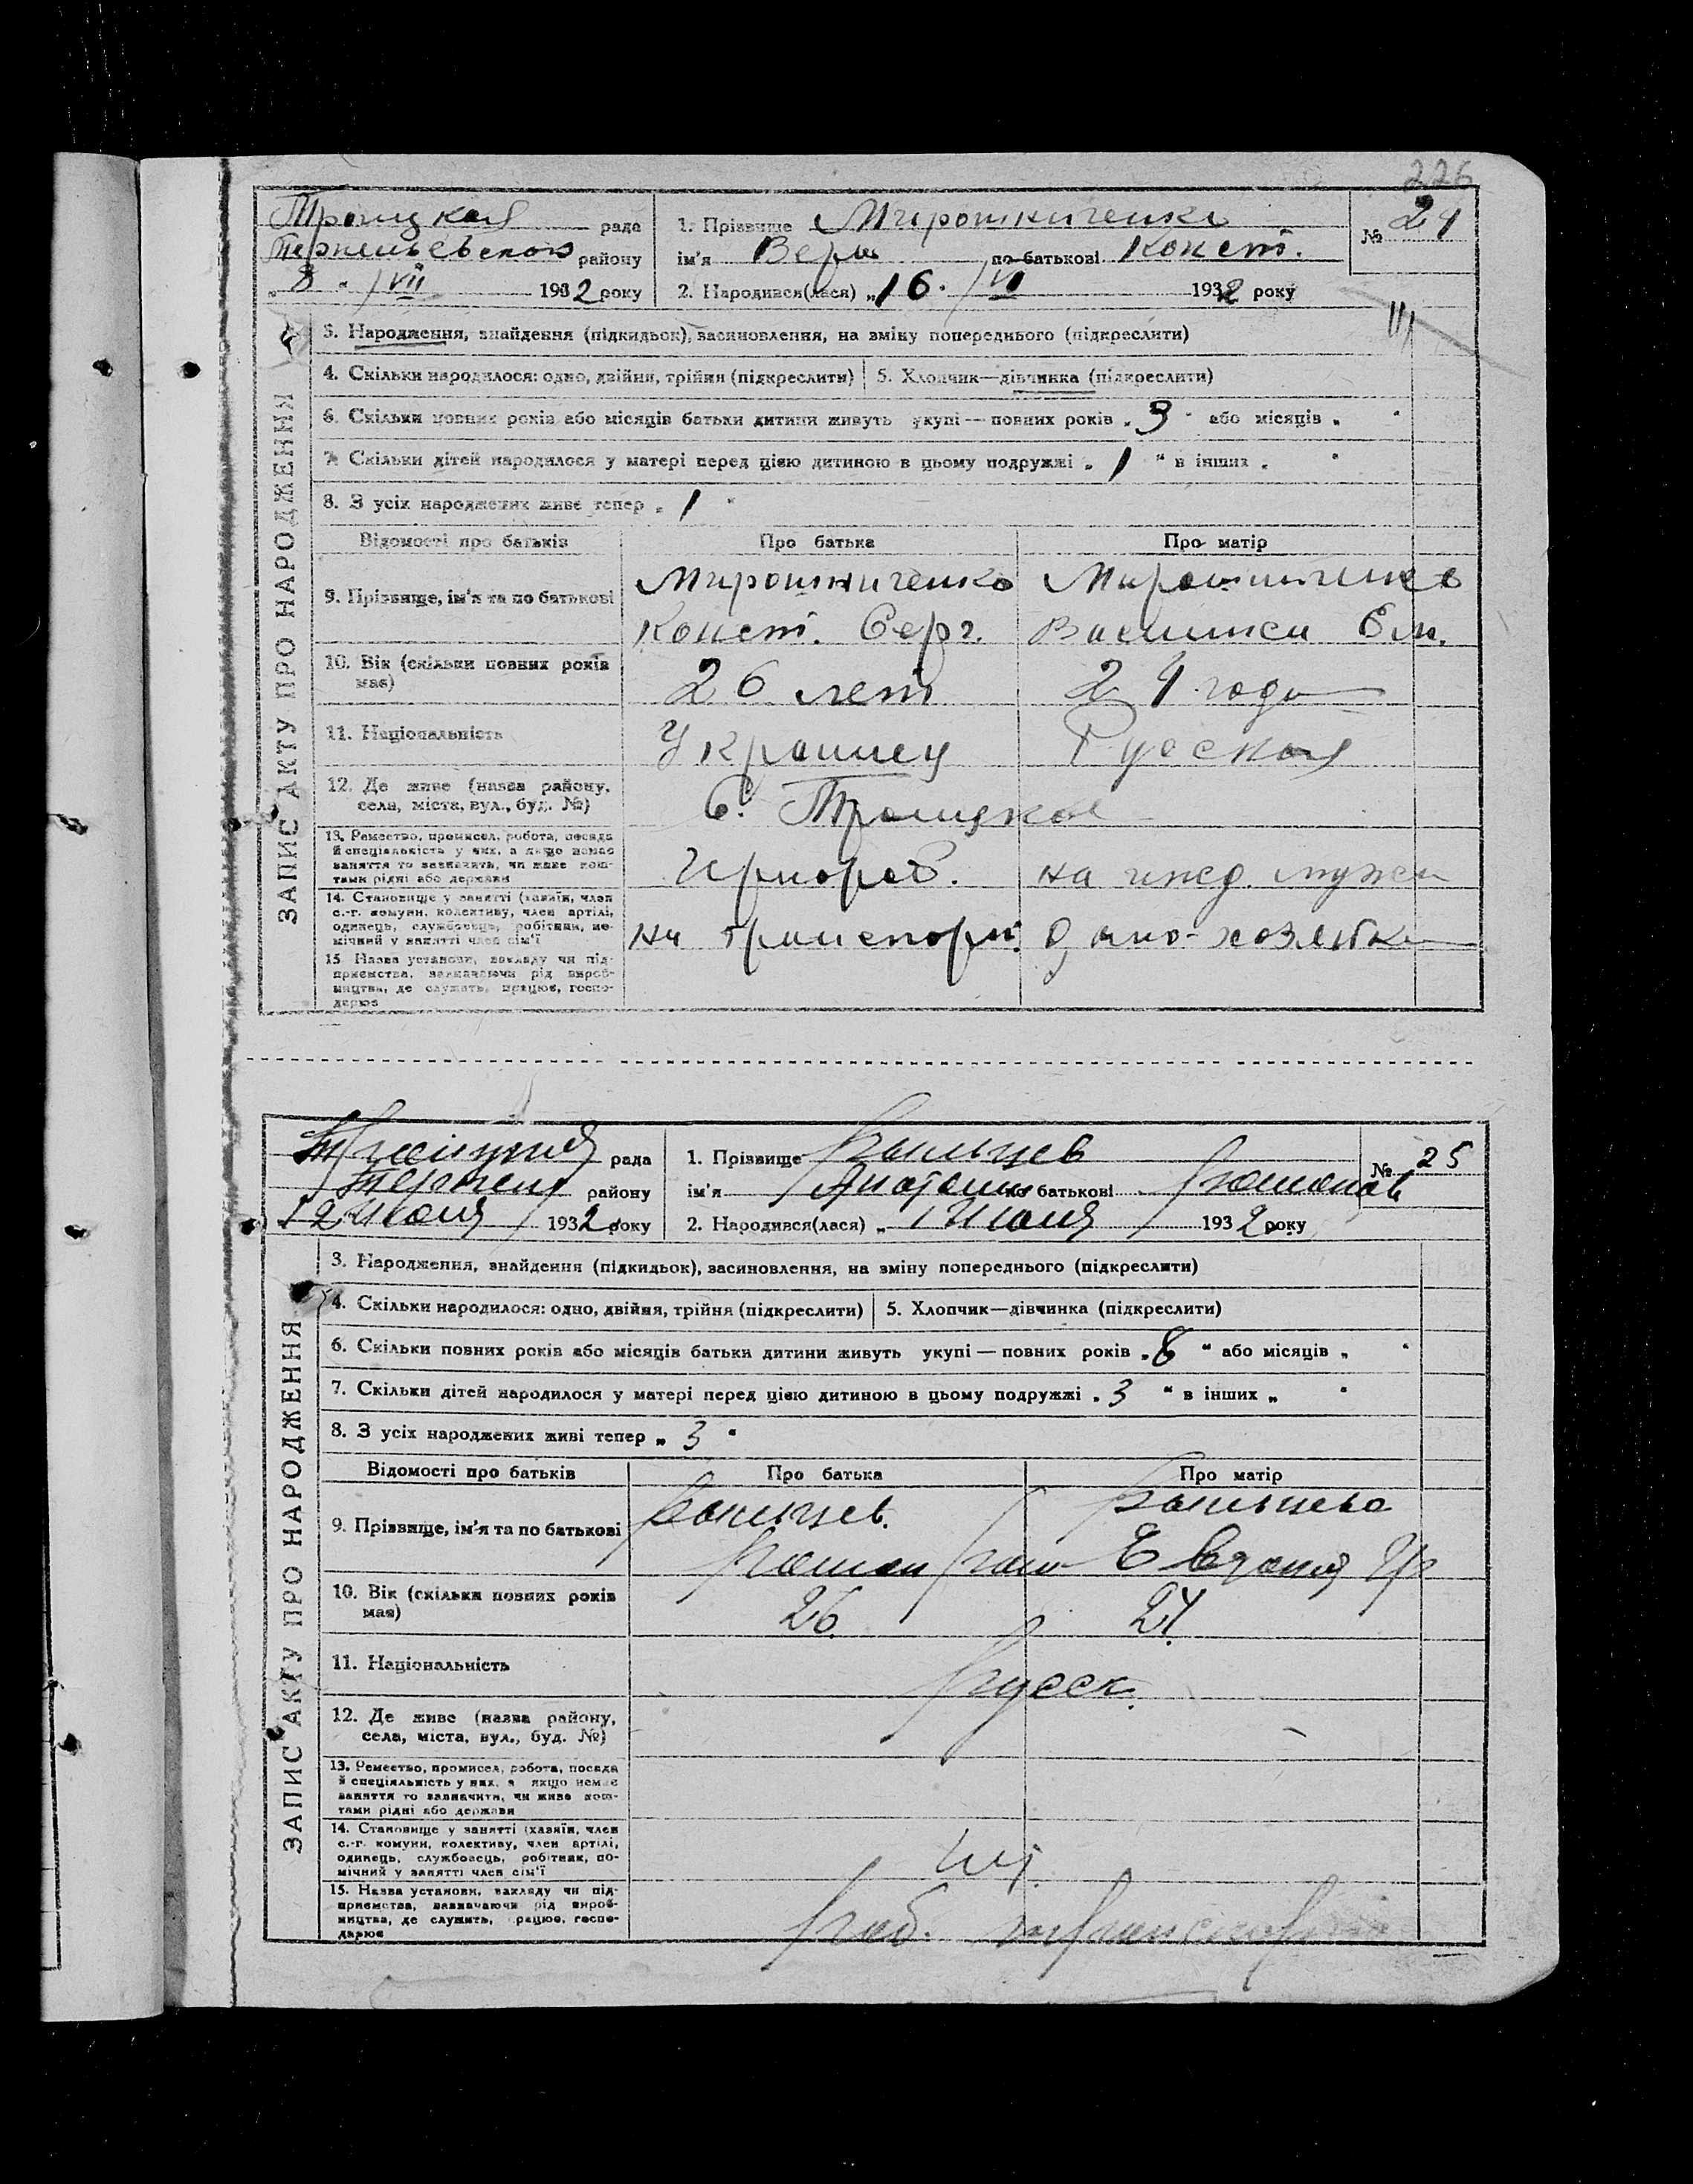 226
Троицкая рада
Терпеньевского районy
„ 8 " / VII 1932 року
1. Прізвище Мирошниченко
ім'я Вера по батькові Конст.
2. Народився(лася) „16. / VI 1932 року
№ 24
ЗАПИС АКТУ ПРО НАРОДЖЕННЯ
3. Народження, знайдення (підкидьок), засиновлення, на зміну попереднього (підкреслити)
4. Скільки народилося: одно, двійня, трійня (підкреслити) 5. Хлопчик—дівчинка (підкреслити)
6. Скільки повних років або місяців батьки дитини живуть укупі — повних років „3" або місяців „ "
7. Скільки дітей народилося у матері перед цією дитиною в цьому подружжі „ 1 " в інших „ "
8. З усіх народжених живе тепер „ 1 "
Відомості про батьків Про батька Про матір
9. Прізвище, ім'я та по батькові
Мирошниченко Мирошниченко
Конст. Серг.
10. Вік (скільки повних років має)
26 лет 24 года
11. Національність
Украинец Русская
12. Де живе (назва району, села, міста, вул., буд. №)
С. Троицкое
13. Ремество, промисел, робота, посада
й спеціяльність у них, а якщо немає
заняття то зазначить, чи живе кош-
тами рідні або держави
Чернораб. на ижд. мужа
14. Становище у занятті (хазяїн, член
с.-г. комуни, колективу, член артілі,
одинець, службовець, робітник, по-
мічний у занятті член сім'ї
на транспорт. домо-хозяйка
15. Назва установи, закладу чи під-
приємства, зазначаючи рід вироб-
ництва, де служить, працює, госпо-
дарює
Троицкая рада
Терпен районy
12 Июля 1932 року
1. Прізвище
ім'я Анатолий по батькові Романов
2. Народився(лася) „ 1 Июля 1932 року
№ 25
ЗАПИС АКТУ ПРО НАРОДЖЕННЯ
3. Народження, знайдення (підкидьок), засиновлення, на зміну попереднього (підкреслити)
4. Скільки народилося: одно, двійня, трійня (підкреслити) 5. Хлопчик—дівчинка (підкреслити)
6. Скільки повних років або місяців батьки дитини живуть укупі — повних років „8 " або місяців „ "
7. Скільки дітей народилося у матері перед цією дитиною в цьому подружжі „ 3 " в інших „ "
8. З усіх народжених живі тепер „ 3 "
Відомості про батьків Про батька Про матір
9. Прізвище, ім'я та по батькові
Роман
10. Вік (скільки повних років має)
26. 24.
11. Національність
русск.
12. Де живе (назва району, села, міста, вул., буд. №)
13. Ремество, промисел, робота, посада
й спеціяльність у них, а якщо немає
заняття то зазначити, чи живе кош-
тами рідні або держави
14. Становище у занятті (хазяїн, член
с.-г. комуни, колективу, член артілі,
одинець, службовець, робітник, по-
мічний у занятті член сім'ї
15. Назва установи, закладу чи під-
приємства, зазначаючи рід вироб-
ництва, де служить, працює, госпо-
дарює
раб. транспорт